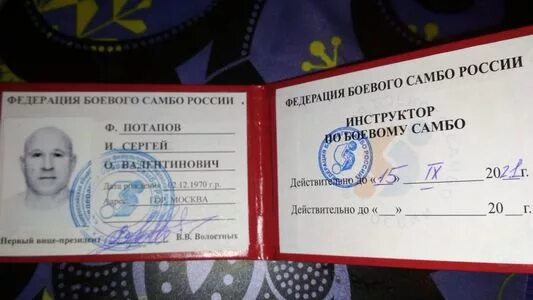 ФЕДЕРАЦИЯ БОЕВОГО САМБО РОССИИ
Ф. ПОТАПОВ
И. СЕРГЕЙ
О. ВАЛЕНТИНОВИЧ
Дата рождения 02.12.1970 г.р.
Адрес: ГОР. МОСКВА
Первый вице-президент В.В. Волостных
ФЕДЕРАЦИЯ БОЕВОГО САМБО РОССИИ
ИНСТРУКТОР
ПО БОЕВОМУ САМБО
Действительно до «15» IX 2021г.
Действительно до «__» ________ 20__г.